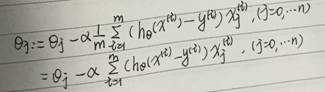 θj := θj - α 1/m ∑_{i=1}^{m} (hθ(x^(i)) - y^(i)) xj^(i), (j=0,…n)
= θj - α ∑_{i=1}^{m} (hθ(x^(i) - y^(i)) xj^(i), (j=0,…n)